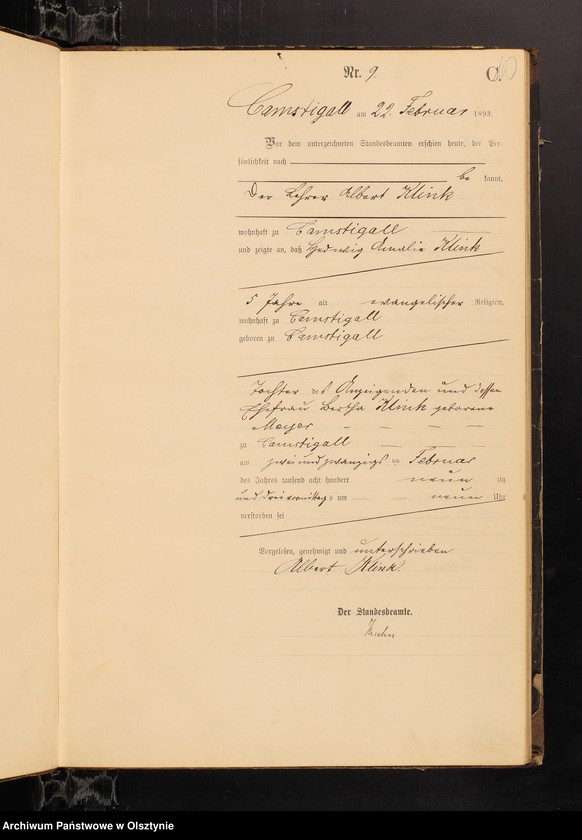 Nr. 9.
Camstigall am 22. Februar 1893.
Vor dem unterzeichneten Standesbeamten erschien heute, der Per-
sönlichkeit nach
be kannt,
Der Lehrer Albert Klink
wohnhaft zu Camstigall
und zeigte an, daß Hedwig Amalie Klink
5 Jahre alt evangelischer Religion,
wohnhaft zu Camstigall
geboren zu Camstigall
Tochter des Anzeigenden und dessen
Ehefrau Bertha Klink geborene
Meyer
zu Camstigall
am zwei und zwanzigs ten Februar
des Jahres tausend acht hundert neun zig
und drei vormittag s um neun Uhr
verstorben sei
Vorgelesen, genehmigt und unterschrieben
Albert Klink.
Der Standesbeamte.
Archiwum Państwowe w Olsztynie